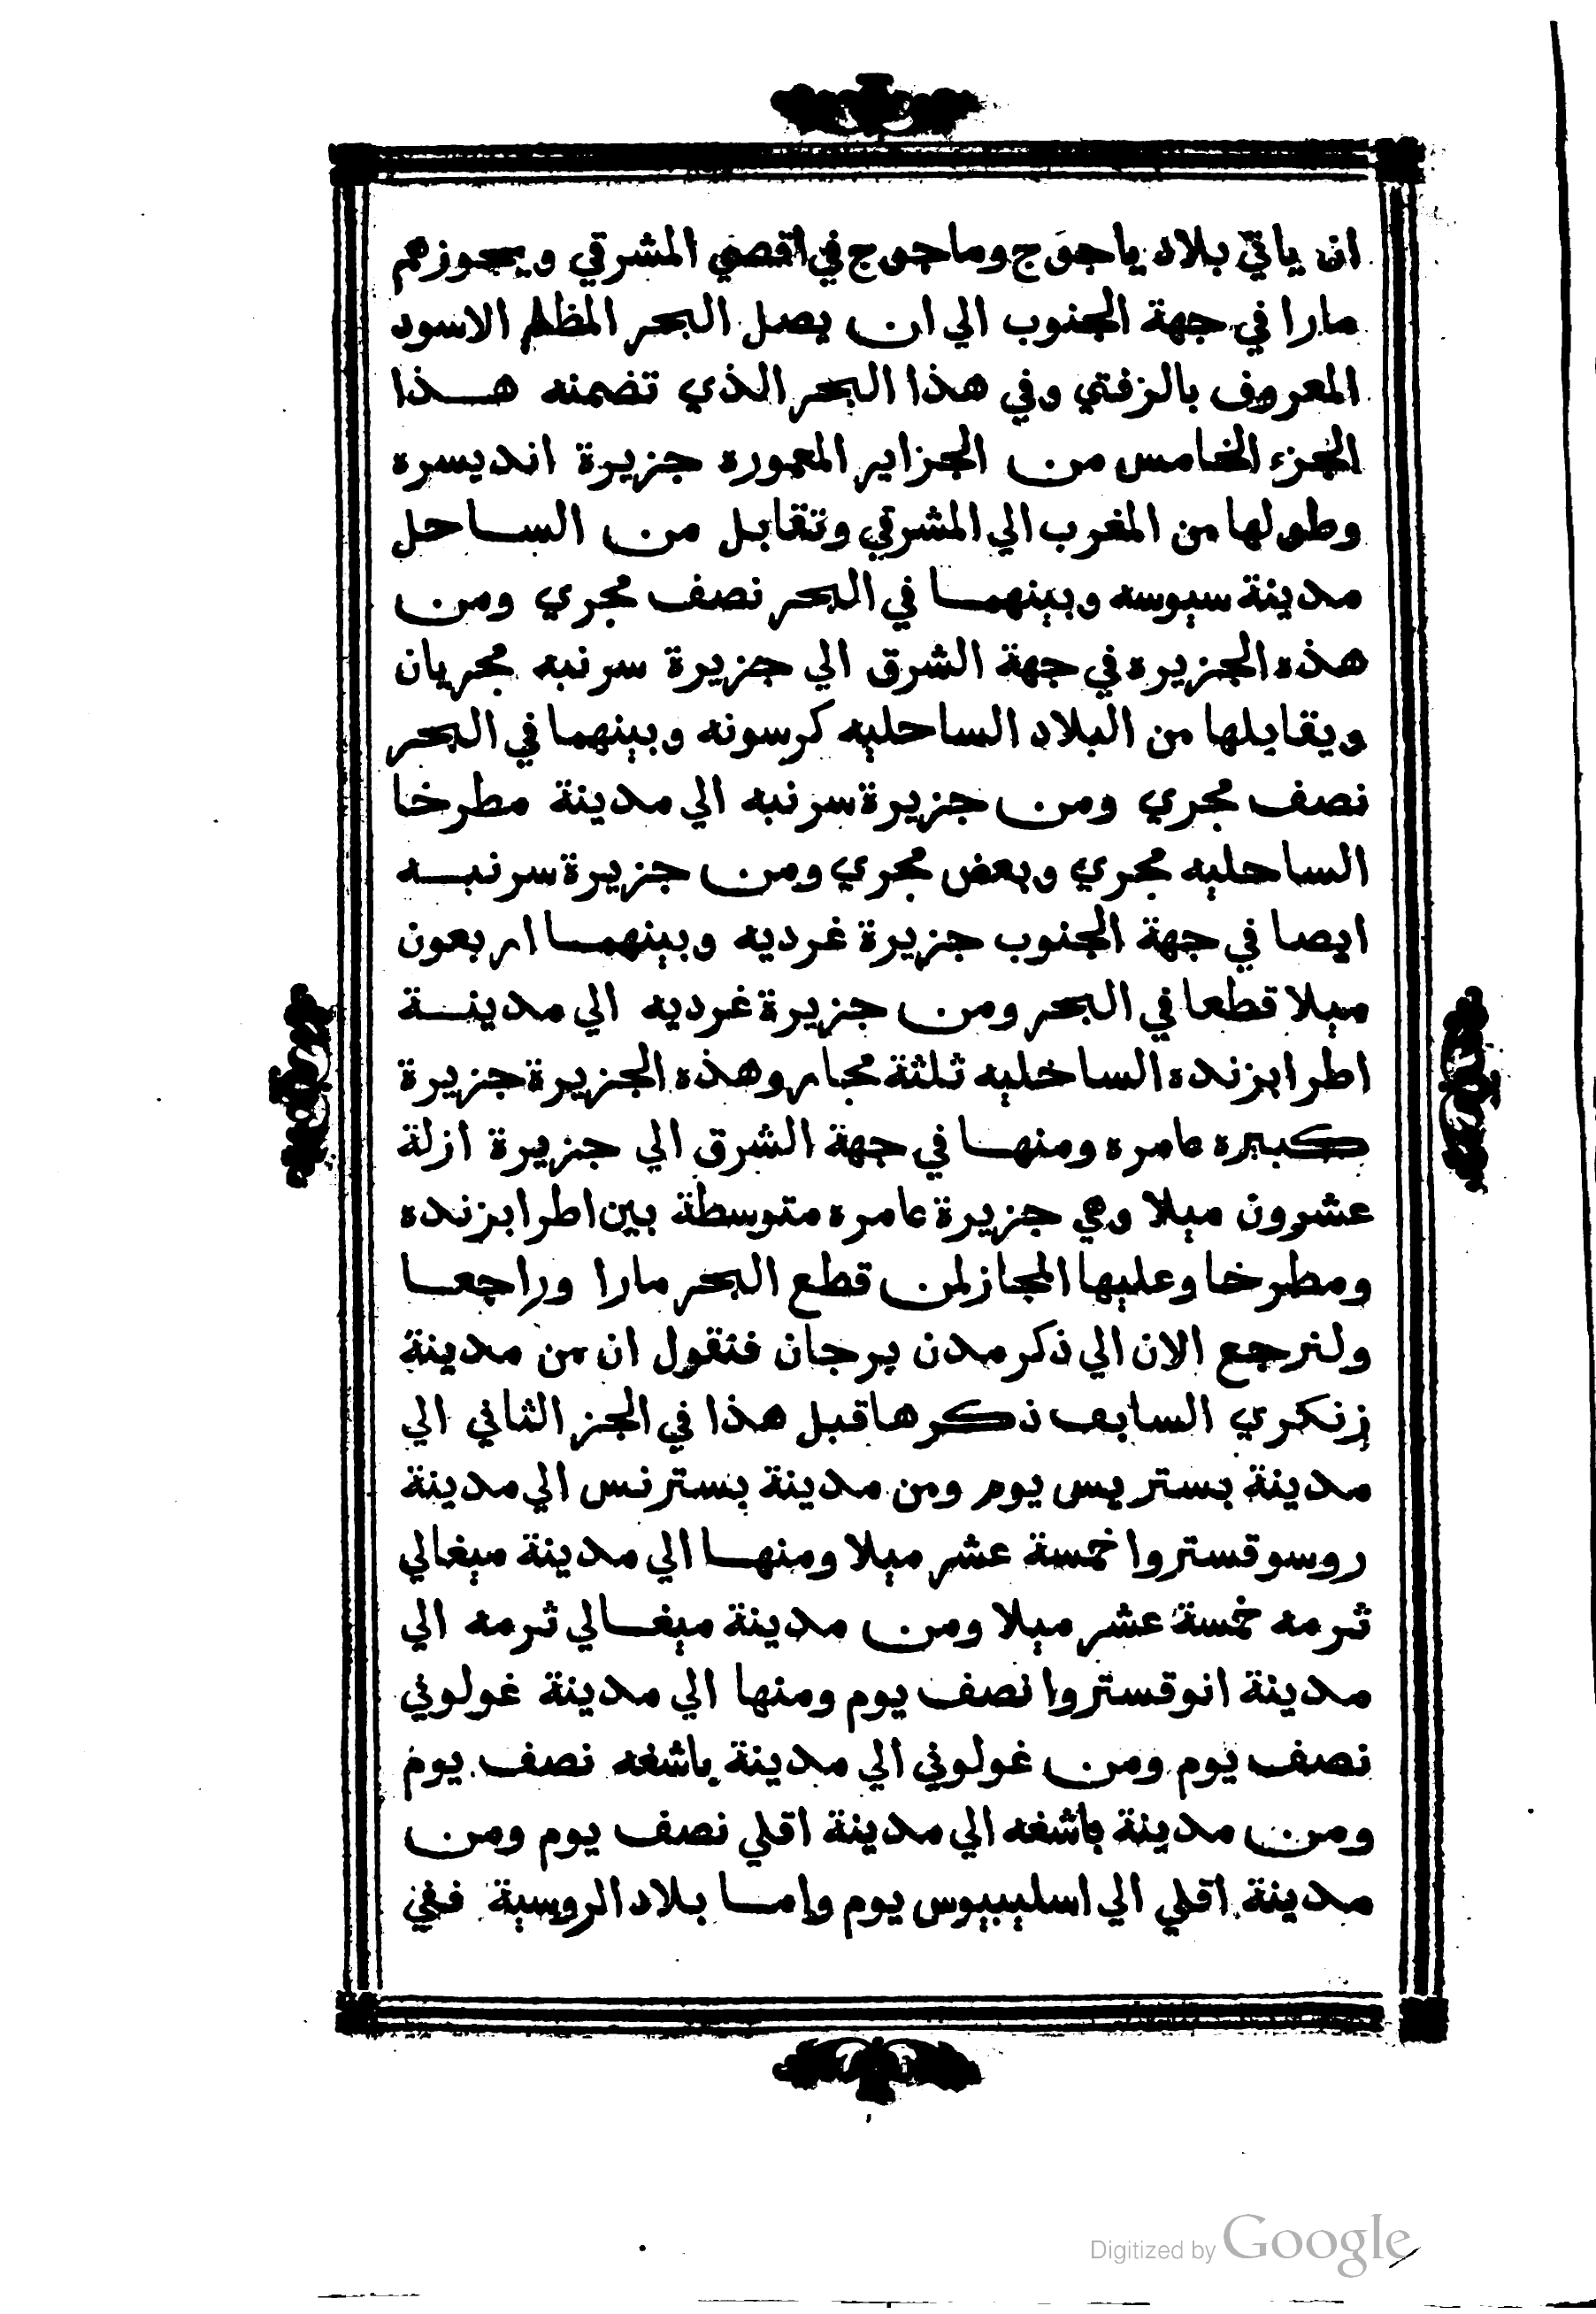 ان ياتي بلاد ياجوج وماجوج في اقصي المشرقي ويجوزهم
مارا في جهة الجنوب الي ان يصل البحر المظلم الاسود
المعروف بالزفتي وفي هذا البحر الذي تضمنه هذا
الجزء الخامس من الجزاير المعموره جزيرة انديسره
وطولها من المغرب الي المشرقي وتقابل من الساحل
مدينة سيوسه وبينهما في البحر نصف مجري ومن
هذه الجزيره في جهة الشرق الي جزيرة سرنبه مجريان
ويقابلها من البلاد الساحليه كرسونه وبينهما في البحر
نصف مجري ومن جزيرة سرنبه الي مدينة مطرخا
الساحليه مجري وبعض مجري ومن جزيرة سرنبه
ايصا في جهة الجنوب جزيرة غرديه وبينهما اربعون
ميلا قطعا في البحر ومن جزيرة غرديه الي مدينة
اطرابزنده الساخليه ثلثة مجار وهذه الجزيرة جزيرة
كبيره عامره ومنها في جهة الشرق الي جزيرة ازلة
عشرون ميلا وهي جزيرة عامره متوسطة بين اطرابزنده
ومطرخا وعليها المجاز لمن قطع البحر مارا وراجعا
ولنرجع الان الي ذكر مدن برجان فنقول ان من مدينة
زنكري السابف ذكرها قبل هذا في الجز الثاني الي
مدينة بستريس يوم ومن مدينة بسترنس الي مدينة
روسوقستروا خمسة عشر ميلا ومنها الي مدينة ميغالي
ثرمه خمسة عشر ميلا ومن مدينة ميغالي ثرمه الي
مدينة انوقستروا نصف يوم ومنها الي مدينة غولوني
نصف يوم ومن غولوني الي مدينة باشغه نصف يوم
ومن مدينة باشغه الي مدينة اقلي نصف يوم ومن
مدينة اقلي الي اسليبيوس يوم واما بلاد الروسية ففي
Digitized by Google